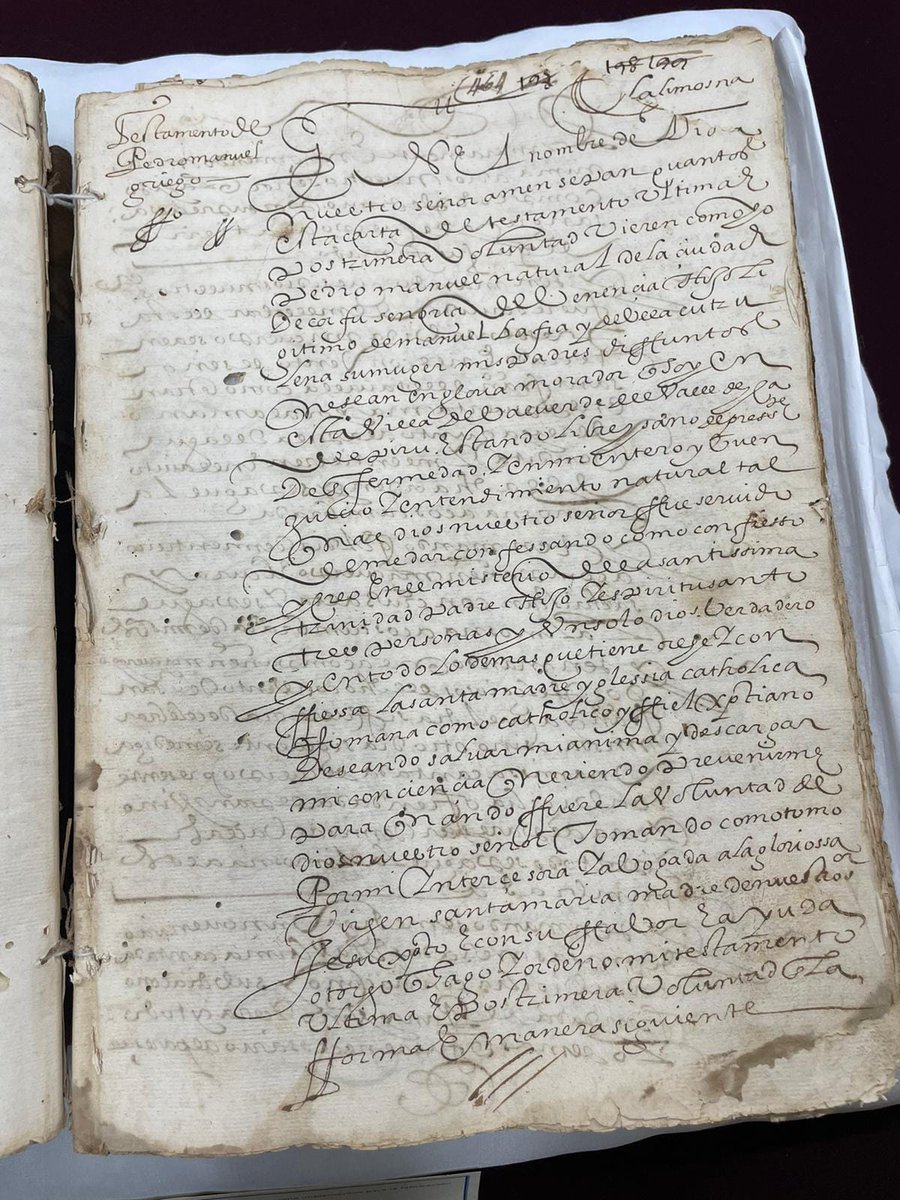 464 198 198 199
la limosna
Testamento de
Pedro manuel
griego
En el nombre de Dios
nuestro señor amen sepan quantos
esta carta de testamento Ultima E
Postrimera Voluntad Vieren como yo
Pedro manuel natural de la ciudad
De corfu señoria de Venencia Hijo li
gitimo de manuel
lena su muger mis padres difuntos
que sean en gloria morador que soy en
esta Villa de Valverde del Valle de yca
del piru Estando libre y sano de press te
De Enfermedad y en mi entero y buen
juicio y entendimiento natural tal
qual dios nuestro señor fue servido
de me dar confessando como confiesso
y creo En el misterio de la santissima
trinidad Padre Hijo y espiritu santo
tres personas y Un solo dios Verdadero
y en todo lo demas que tiene cree y con
fiessa la santa madre yglessia catholica
Romana como catholico y fiel xptiano
Deseando salvar mi anima y descargar
mi conciencia queriendo prevenirme
Para quando fuere la Voluntad de
dios nuestro señor Tomando como tomo
Por mi Intercesora y abogada a la gloriossa
Virgen santa maria madre de nuestro sor
Jesu xpto E con su favor E ayuda
otorgo que hago y ordeno mi testamento
Ultima E Postrimera Voluntad En la
forma E manera siguiente